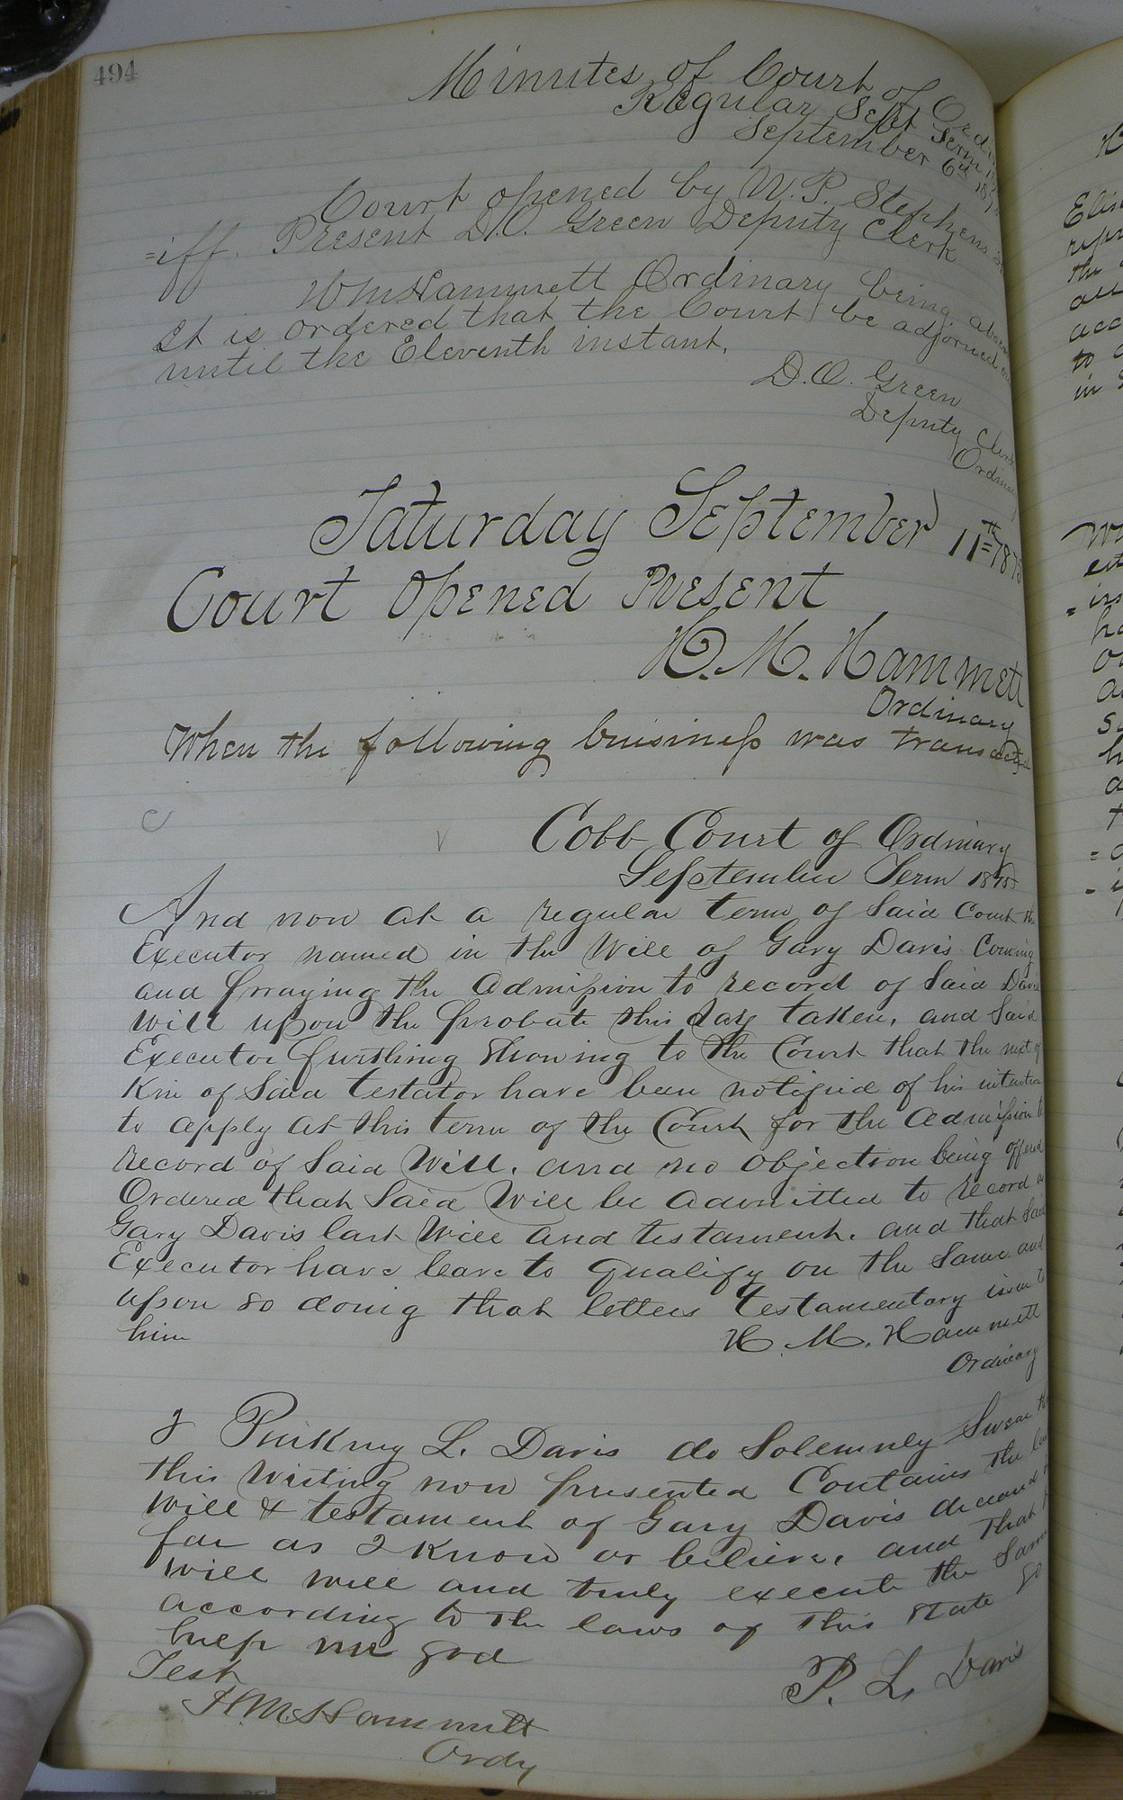 494
Minutes of Court of
Regular Sept Term
September 6th
Court opened by W. P. Stephens
=iff. Present D. O. Green Deputy Clerk
Wm Hammett Ordinary being
It is ordered that the Court be adjorned
until the Eleventh instant.
D. O. Green
Deputy Clerk
Saturday September 11th
Court Opened Present
H. M. Hammett
Ordinary
When the following buisiness was
C
Cobb Court of Ordinary
September Term 1875
And now at a regular term of Said Court the
Executor named in the Will of Gary Davis Coming
and Praying the Admission to record of Said Davis
will upon the Probate this day taken, and Said
Executor furthing Showing to the Court that the next of
Kin of Said testator have been notified of his intention
to apply at this term of the Court for the admission to
record of Said Will, and no objection being offered
Ordered that Said Will be admitted to record as
Gary Davis last Will and testament. and that Said
Executor have leave to qualify on the Same and
upon so doing that letters testamentary issue to
him
H. M. Hammett
Ordinary
I Pinkney L. Davis do Solemnly Swear
this Writing now presented Contains the
will & testament of Gary Davis deceased
far as I know or believe, and that
will well and truly execute the Same
according to the laws of this State So
help me god
P. L. Davis
Test
H. M. Hammett
Ordy